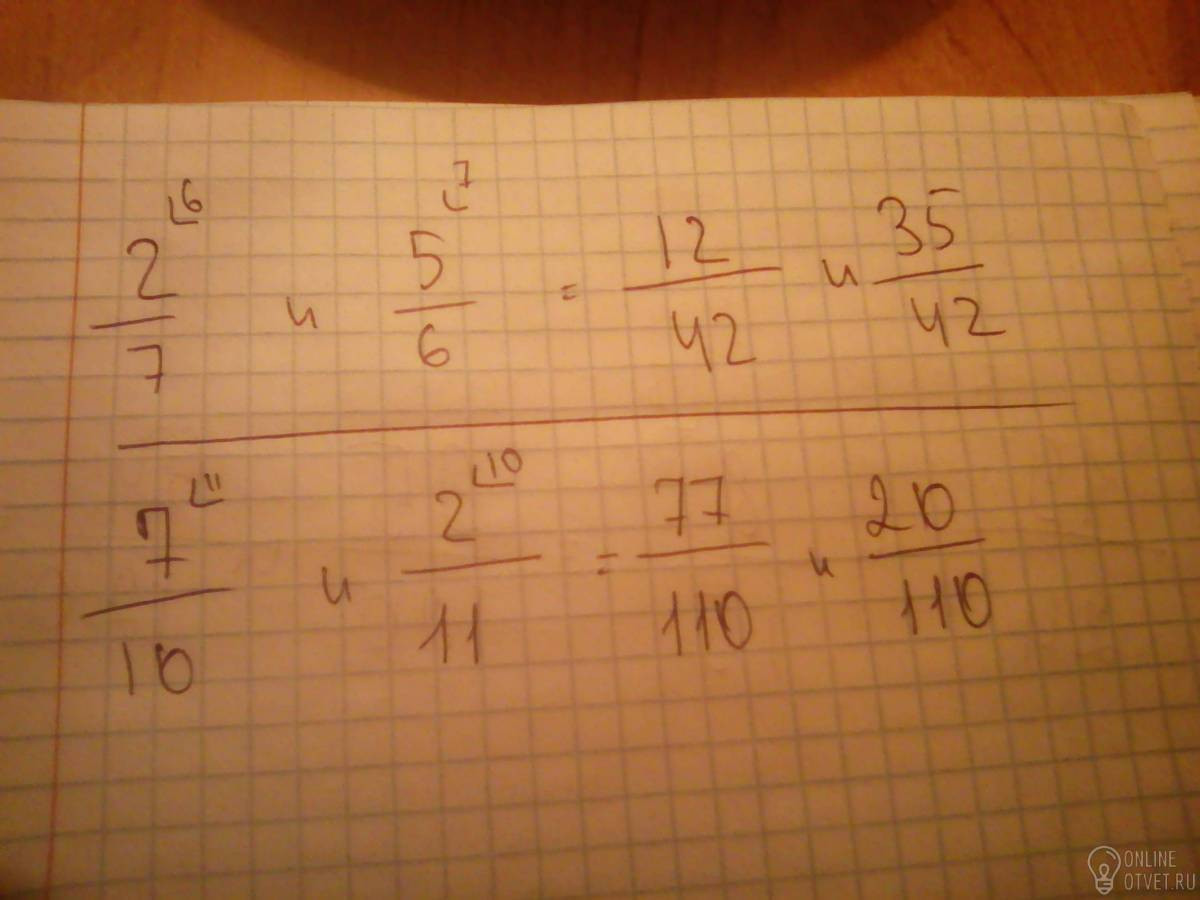 2/7 ⌞6 и 5/6 ⌞7 = 12/42 и 35/42
7/10 ⌞11 и 2/11 ⌞10 = 77/110 и 20/110
ONLINE
OTVET.RU